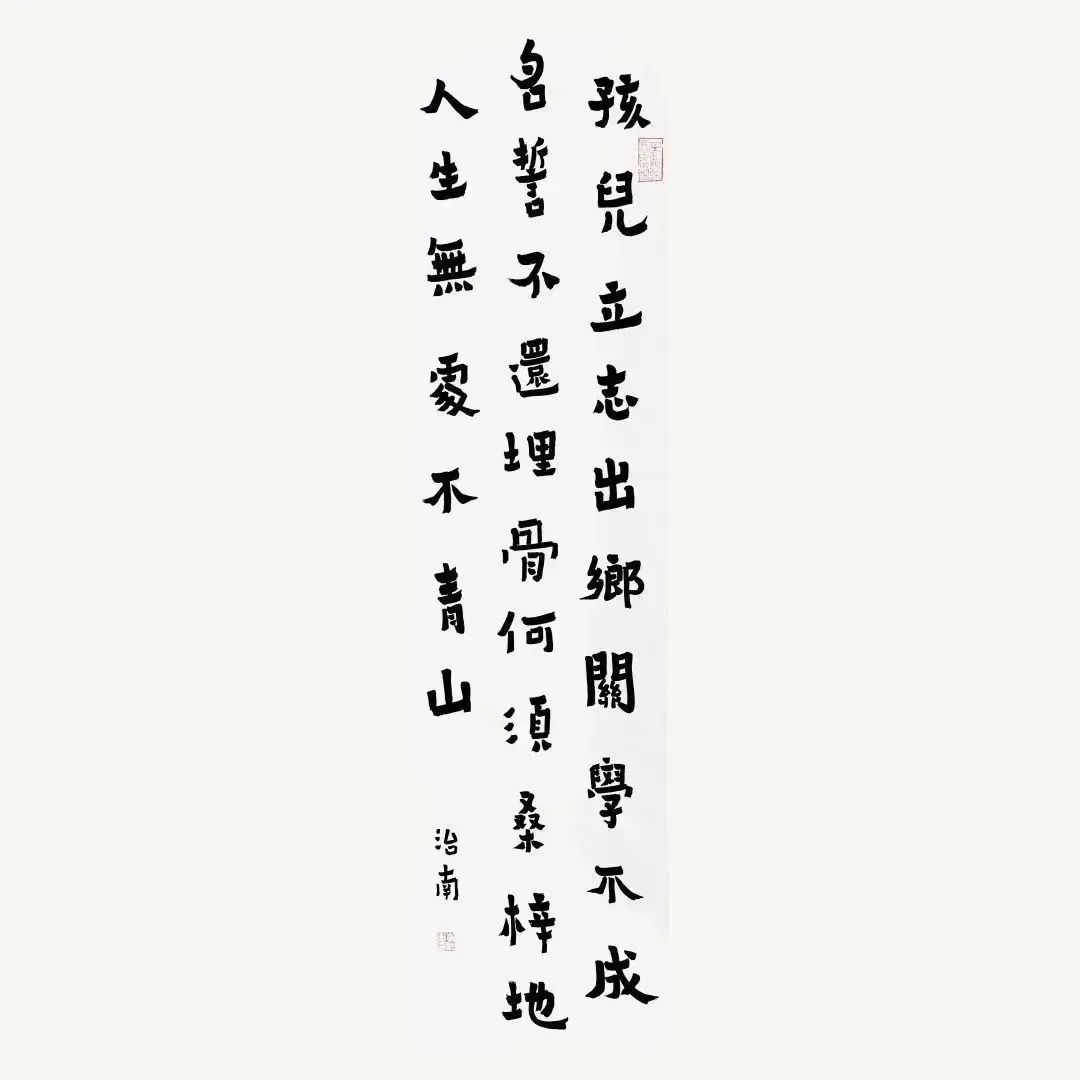 孩兒立志出鄉關學不成
名誓不還埋骨何須桑梓地
人生無處不青山
治南